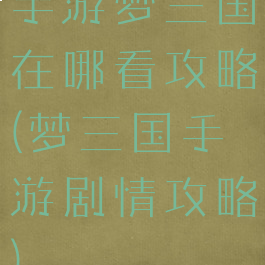 手游梦三国
在哪看攻略
(梦三国手
游剧情攻略
)